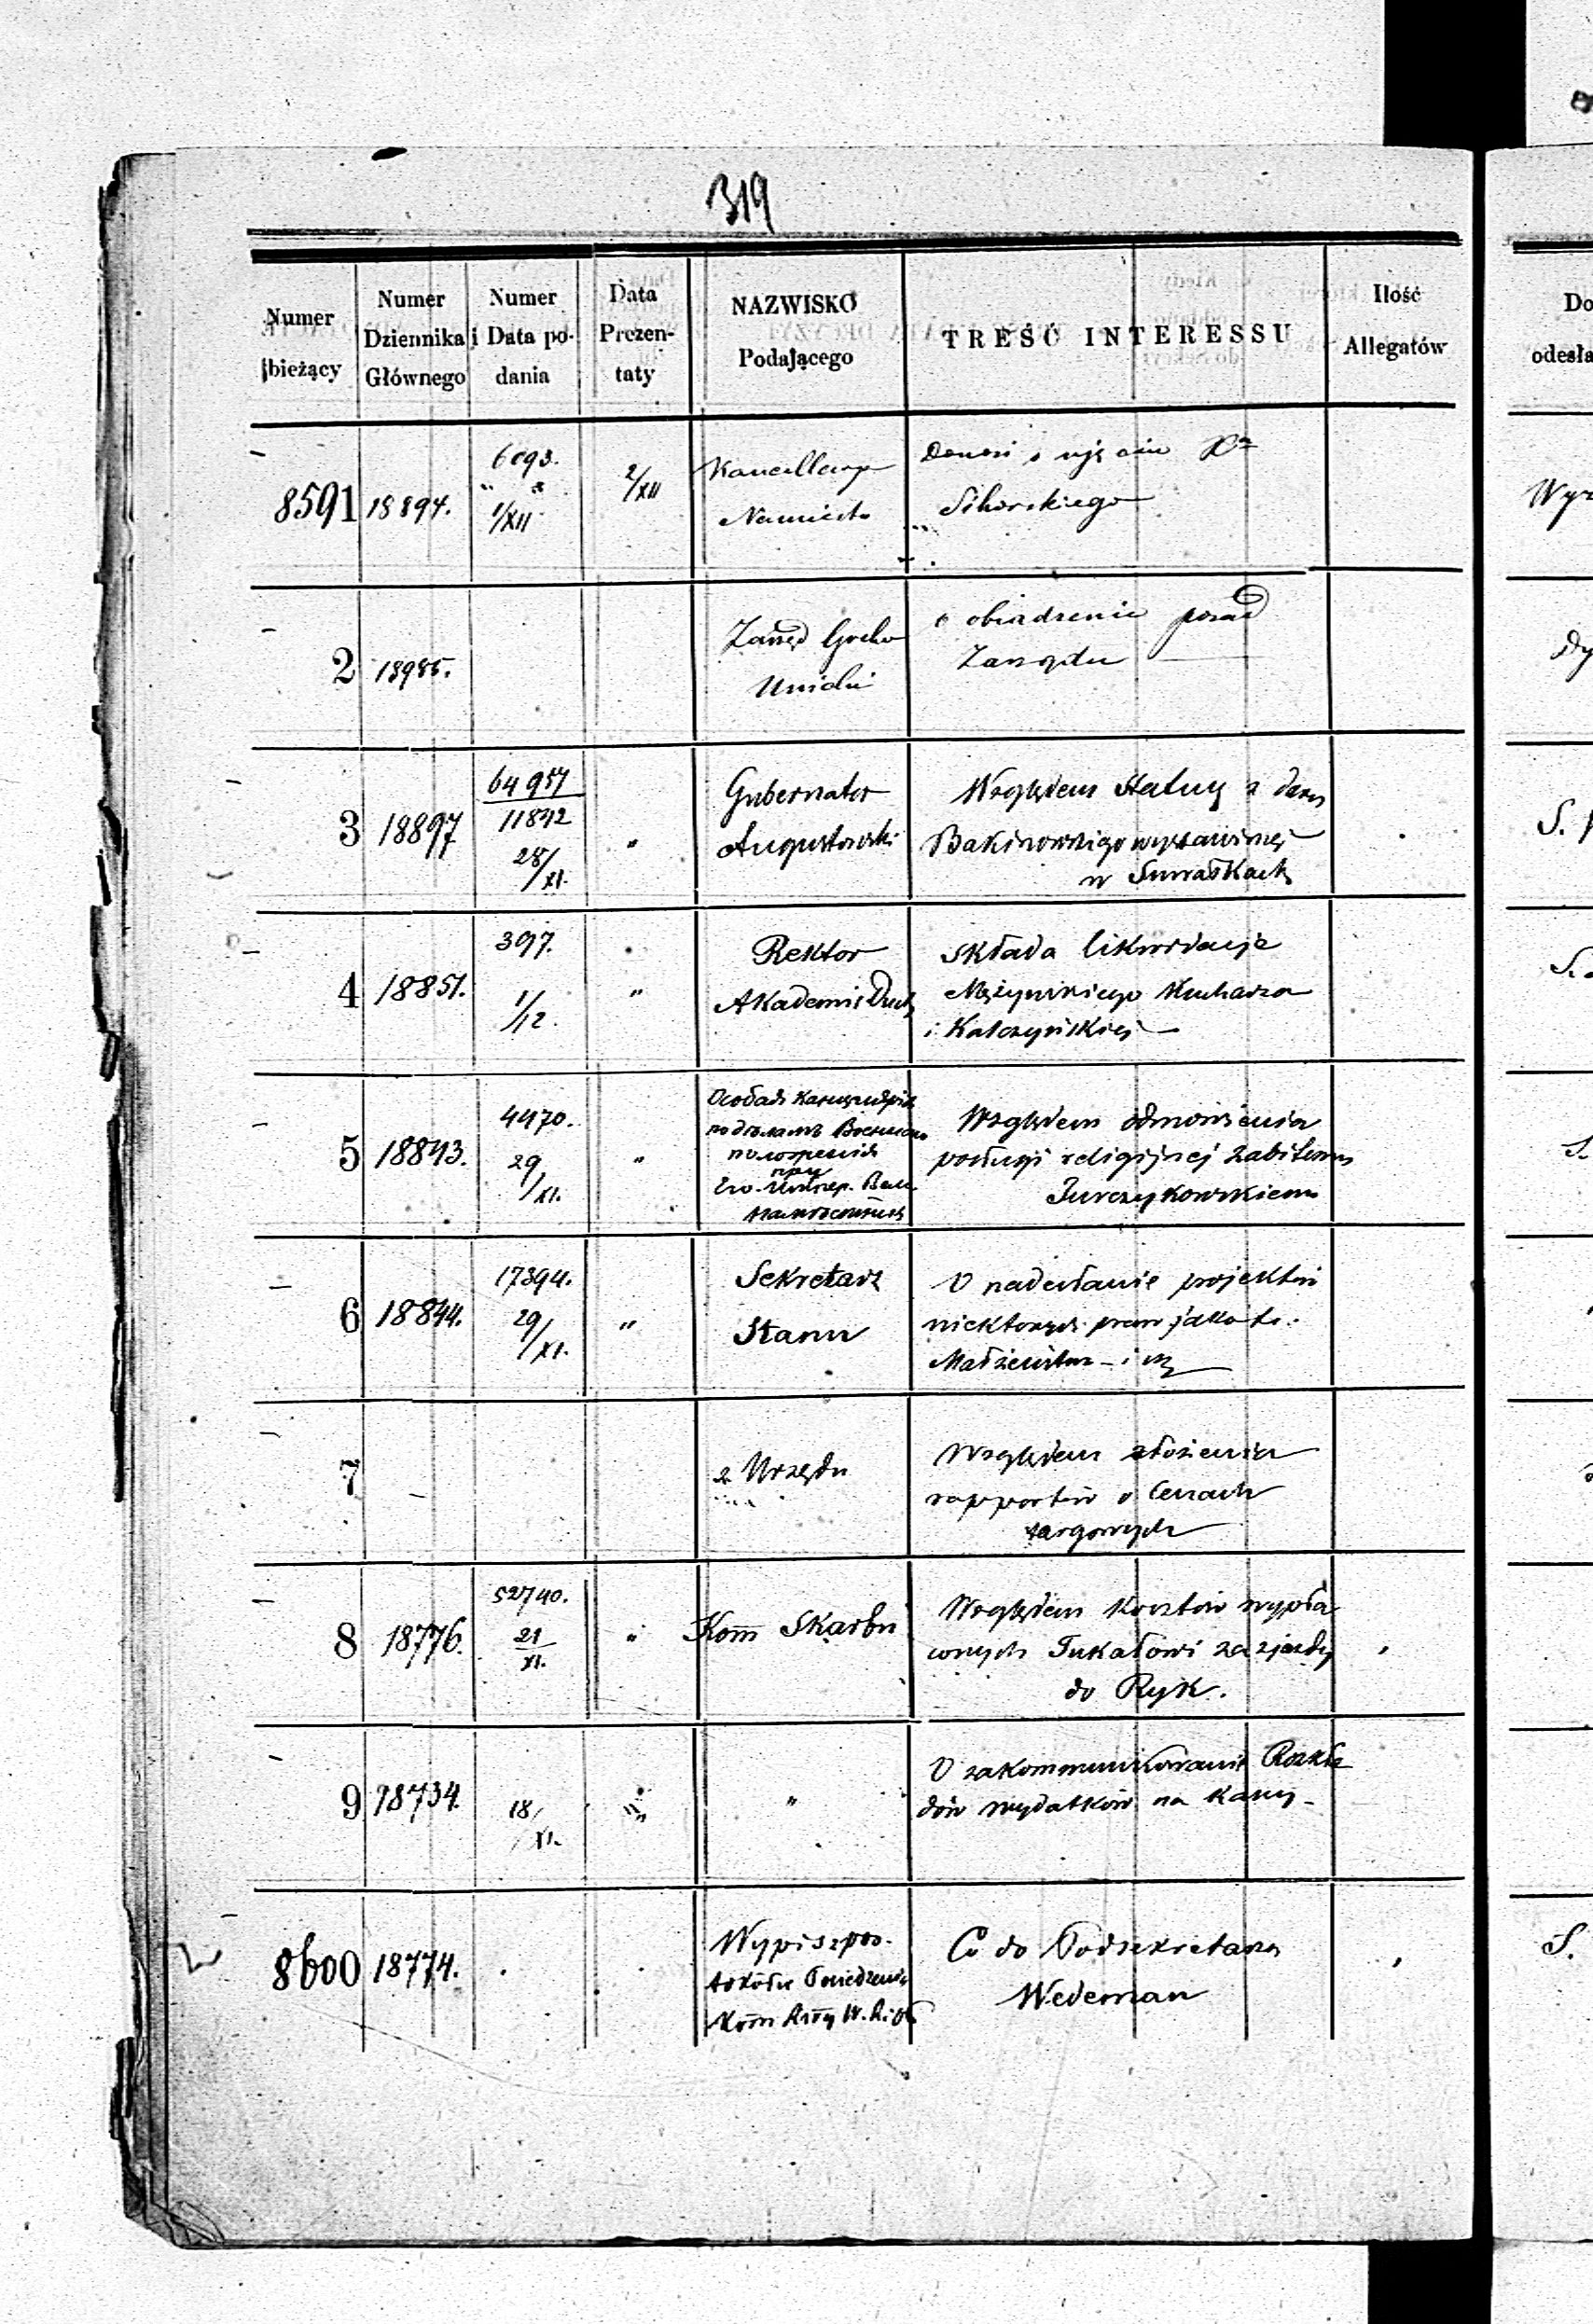 319
Numer bieżący
Numer Dziennika Głównego
Numer i Data podania
Data Prezentaty
NAZWISKO Podającego
TREŚĆ INTERESSU
Ilość Allegatów
8591 18894. 6093. 1/XII 2/XII
Kancellarya Namiest.
Donosi o ujęciu Xa
Sikorskiego
2
Zarząd Grecko Unicki
o obsadzenie posad
Zarządu
3 18897 64957 11842 28/XI. "
Gubernator Augustowski
Względem Statuy z daru
w Suwałkach
4 18851. 397. 1/12. "
Rektor Akademii Duch
Składa likwidacje
Kucharza
i Kałczyńskiej
5 18843. 4470. 29/XI. "
Względem odmówienia
posługi religijnej zabitemu
Jurczykowskiemu
6 18844. 17394. 29/XI. "
Sekretarz Stanu
O nadesłanie projektów
niektórych praw jako to:
Małżeństwa - i
7 –
z Urzędu
Względem złożenia
rapportów o Cenach
targowych
8 18776. 52740. 21/XI. "
Kom Skarbu
Względem kosztów wypła
conych Tukałowi za zjazdy
do Ryk.
9 18734. 18/XI. "
"
O zakommunikowanie Rozkła
dów wydatków na Kassy –
8600 18774.
Wypis z pro.
tokółu Posiedzenia
Co do Podsekretarza
Wedeman
Do
odesła
Wyz
dy
S.
S.
S.
S.